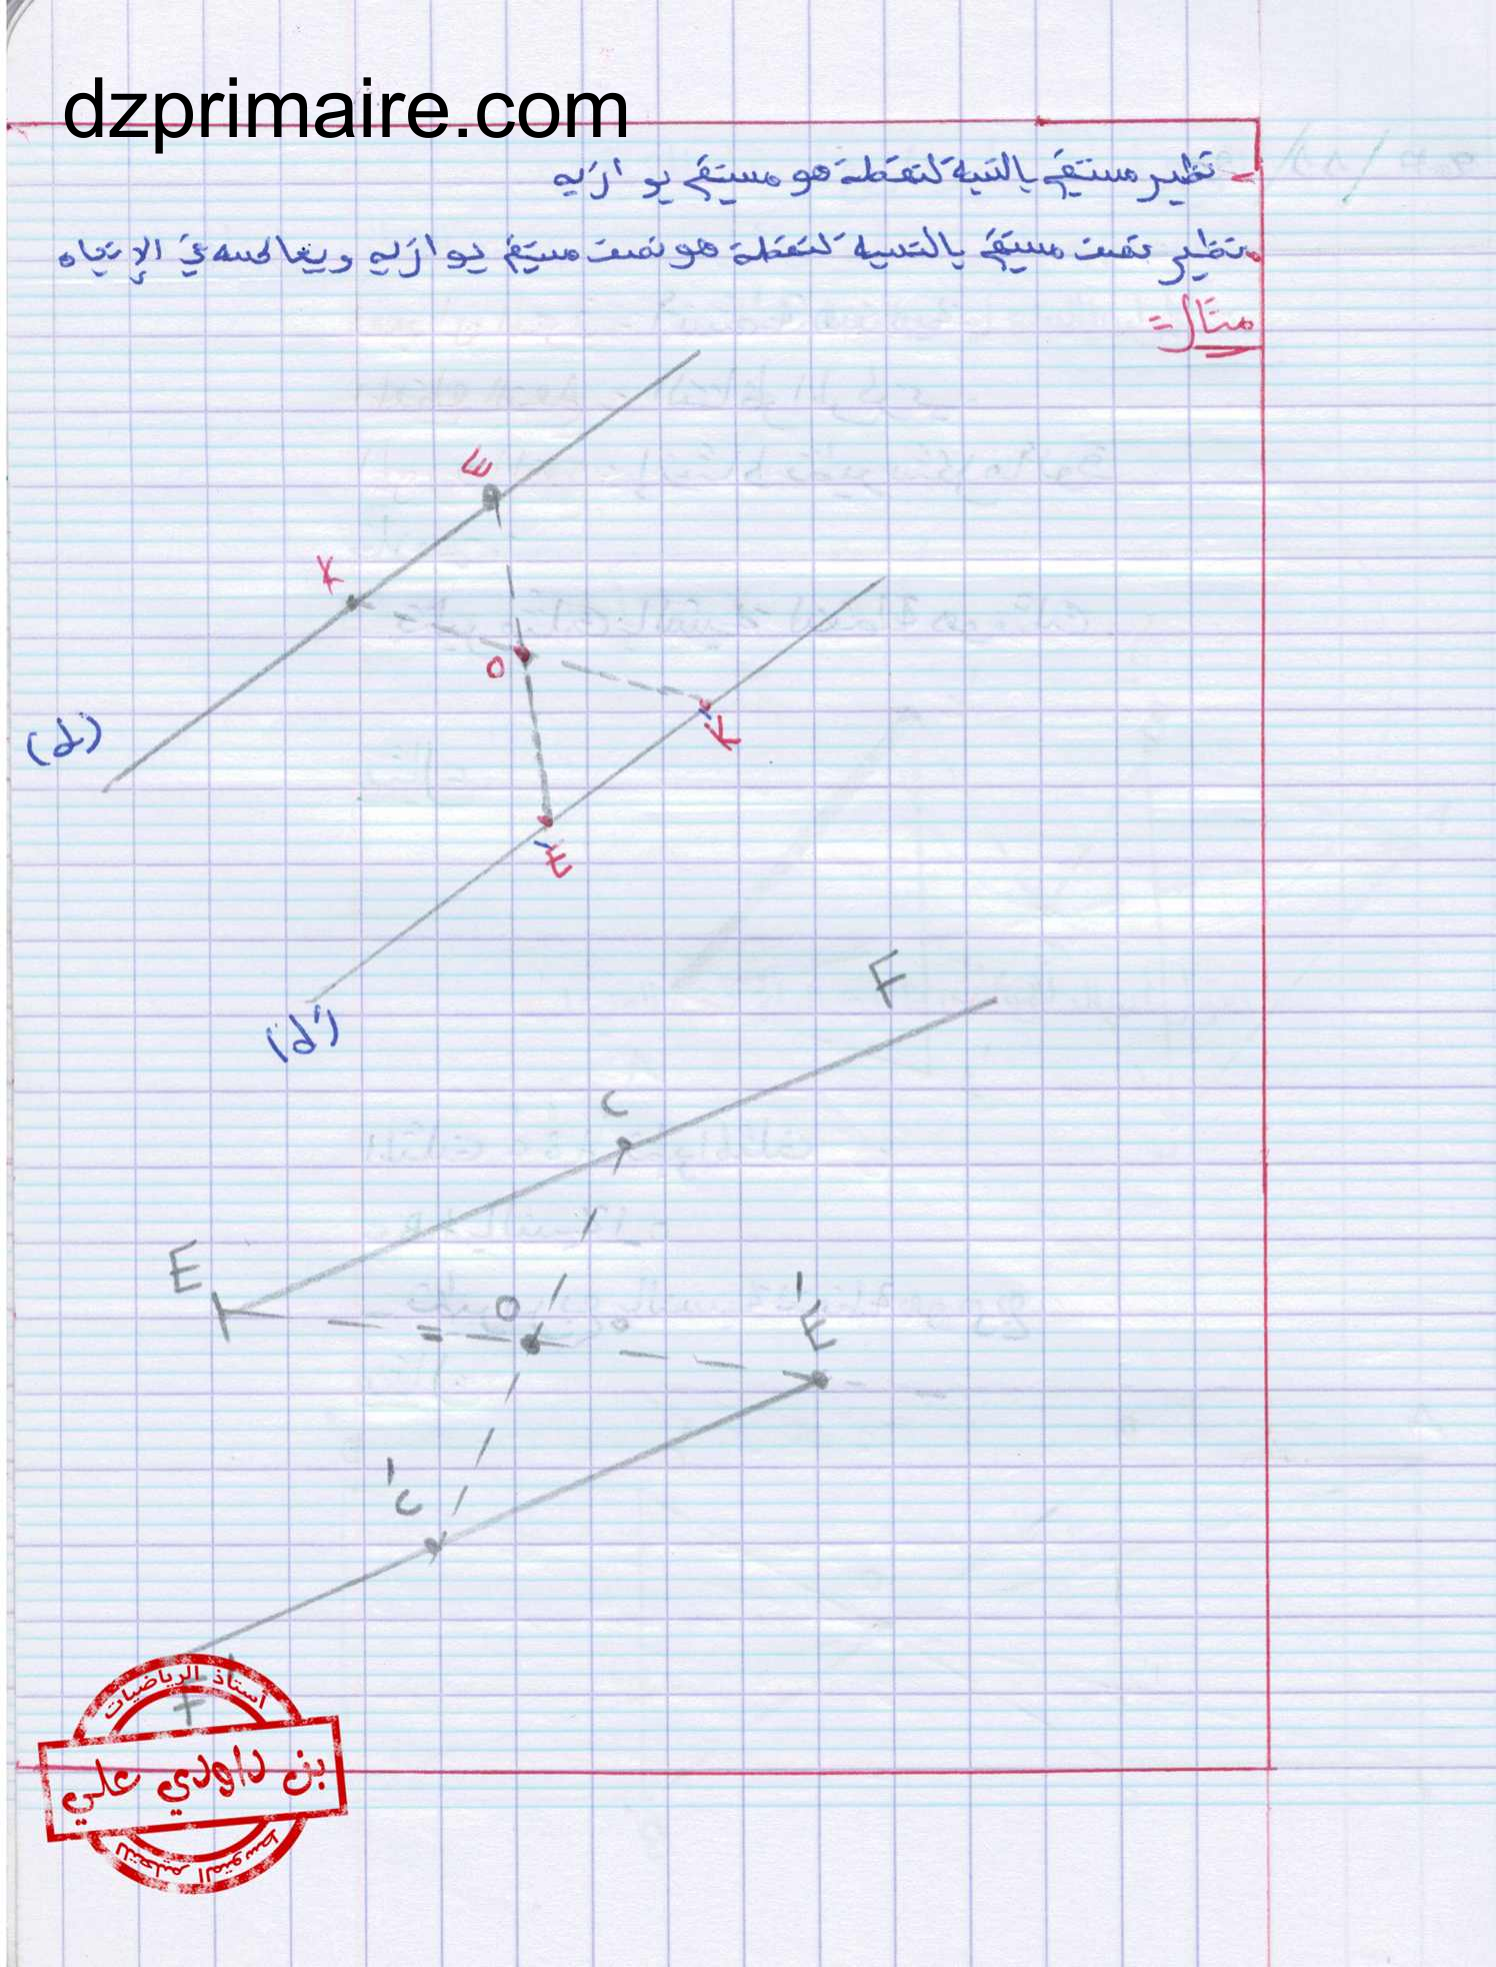 dzprimaire.com
- نظير مستقيم بالنسبة لنقطة هو مستقيم يوازيه
• نظير نصف مستقيم بالنسبة لنقطة هو نصف مستقيم يوازيه ويعاكسه في الإتجاه
مثال =
E
K
O
K'
(d)
E'
F
(d')
C
E
O
E'
C'
F'
أستاذ الرياضيات
بن داودي علي
للتعليم المتوسط